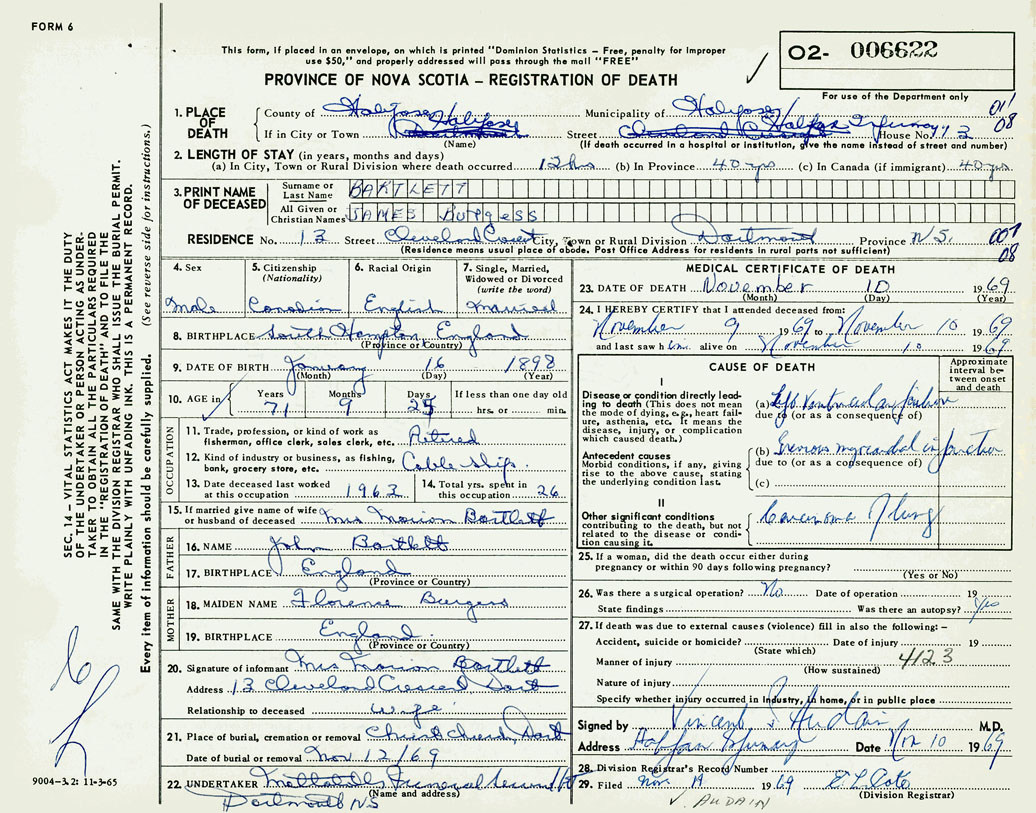 FORM 6
This form, if placed in an envelope, on which is printed "Dominion Statistics – Free, penalty for improper
use $50," and properly addressed will pass through the mail "FREE"
O2- 006622
PROVINCE OF NOVA SCOTIA – REGISTRATION OF DEATH
For use of the Department only
1. PLACE OF DEATH
County of Halifax Municipality of Halifax 011
If in City or Town Halifax Street Halifax Infirmary House No. 13 08
(Name) (If death occurred in a hospital or institution, give the name instead of street and number)
2. LENGTH OF STAY (in years, months and days)
(a) In City, Town or Rural Division where death occurred 12 hrs (b) In Province 40 yrs (c) In Canada (if immigrant) 40 yrs.
3. PRINT NAME OF DECEASED
Surname or Last Name BARTLETT
All Given or Christian Names JAMES Burgess
RESIDENCE No. 13 Street Cleveland Cresent City, Town or Rural Division Dartmouth Province N.S. 007
(Residence means usual place of abode. Post Office Address for residents in rural parts not sufficient) 08
4. Sex
Male
5. Citizenship (Nationality)
Canadian
6. Racial Origin
English
7. Single, Married, Widowed or Divorced (write the word)
Married
8. BIRTHPLACE South Hampton, England
(Province or Country)
9. DATE OF BIRTH January 16 1898
(Month) (Day) (Year)
10. AGE in
Years Months Days If less than one day old
71 9 25 hrs. or min.
OCCUPATION
11. Trade, profession, or kind of work as
fisherman, office clerk, sales clerk, etc. Retired
12. Kind of industry or business, as fishing,
bank, grocery store, etc. Cable Ship.
13. Date deceased last worked
at this occupation 1963
14. Total yrs. spent in
this occupation 26
15. If married give name of wife
or husband of deceased Mrs Marion Bartlett
FATHER
16. NAME John Bartlett
17. BIRTHPLACE England
(Province or Country)
MOTHER
18. MAIDEN NAME Florence Burgess
19. BIRTHPLACE England.
(Province or Country)
20. Signature of informant Mrs Marion Bartlett
Address 13 Cleveland Crescent Dart
Relationship to deceased wife
21. Place of burial, cremation or removal Christ Church, Dart
Date of burial or removal Nov 12/69
22. UNDERTAKER Funeral
(Name and address)
Dartmouth NS
MEDICAL CERTIFICATE OF DEATH
23. DATE OF DEATH November 10 1969
(Month) (Day) (Year)
24. I HEREBY CERTIFY that I attended deceased from:
November 9 1969 to November 10 1969
and last saw him alive on November 10 1969
CAUSE OF DEATH
Approximate interval between onset and death
I
Disease or condition directly leading to death (This does not mean the mode of dying, e.g., heart failure, asthenia, etc. It means the disease, injury, or complication which caused death.)
(a) Left Ventricular failure
due to (or as a consequence of)
Antecedent causes
Morbid conditions, if any, giving rise to the above cause, stating the underlying condition last.
(b) myocardial infarction
due to (or as a consequence of)
(c)
II
Other significant conditions
contributing to the death, but not related to the disease or condition causing it.
Carcinoma of lung
25. If a woman, did the death occur either during
pregnancy or within 90 days following pregnancy?
(Yes or No)
26. Was there a surgical operation? No Date of operation 19
State findings Was there an autopsy? Yes
27. If death was due to external causes (violence) fill in also the following: –
Accident, suicide or homicide? Date of injury 19
(State which)
Manner of injury 4123
(How sustained)
Nature of injury
Specify whether injury occurred in industry, in home, or in public place
Signed by Vincent J Audain M.D.
Address Halifax Infirmary Date Nov 10 1969
28. Division Registrar's Record Number
29. Filed Nov. 19 1969
(Division Registrar)
V. AUDAIN
SEC. 14 – VITAL STATISTICS ACT MAKES IT THE DUTY
OF THE UNDERTAKER OR PERSON ACTING AS UNDER-
TAKER TO OBTAIN ALL THE PARTICULARS REQUIRED
IN THE "REGISTRATION OF DEATH" AND TO FILE THE
SAME WITH THE DIVISION REGISTRAR WHO SHALL ISSUE THE BURIAL PERMIT.
WRITE PLAINLY WITH UNFADING INK. THIS IS A PERMANENT RECORD.
Every item of information should be carefully supplied. (See reverse side for instructions.)
9004-3.2: 11-3-65